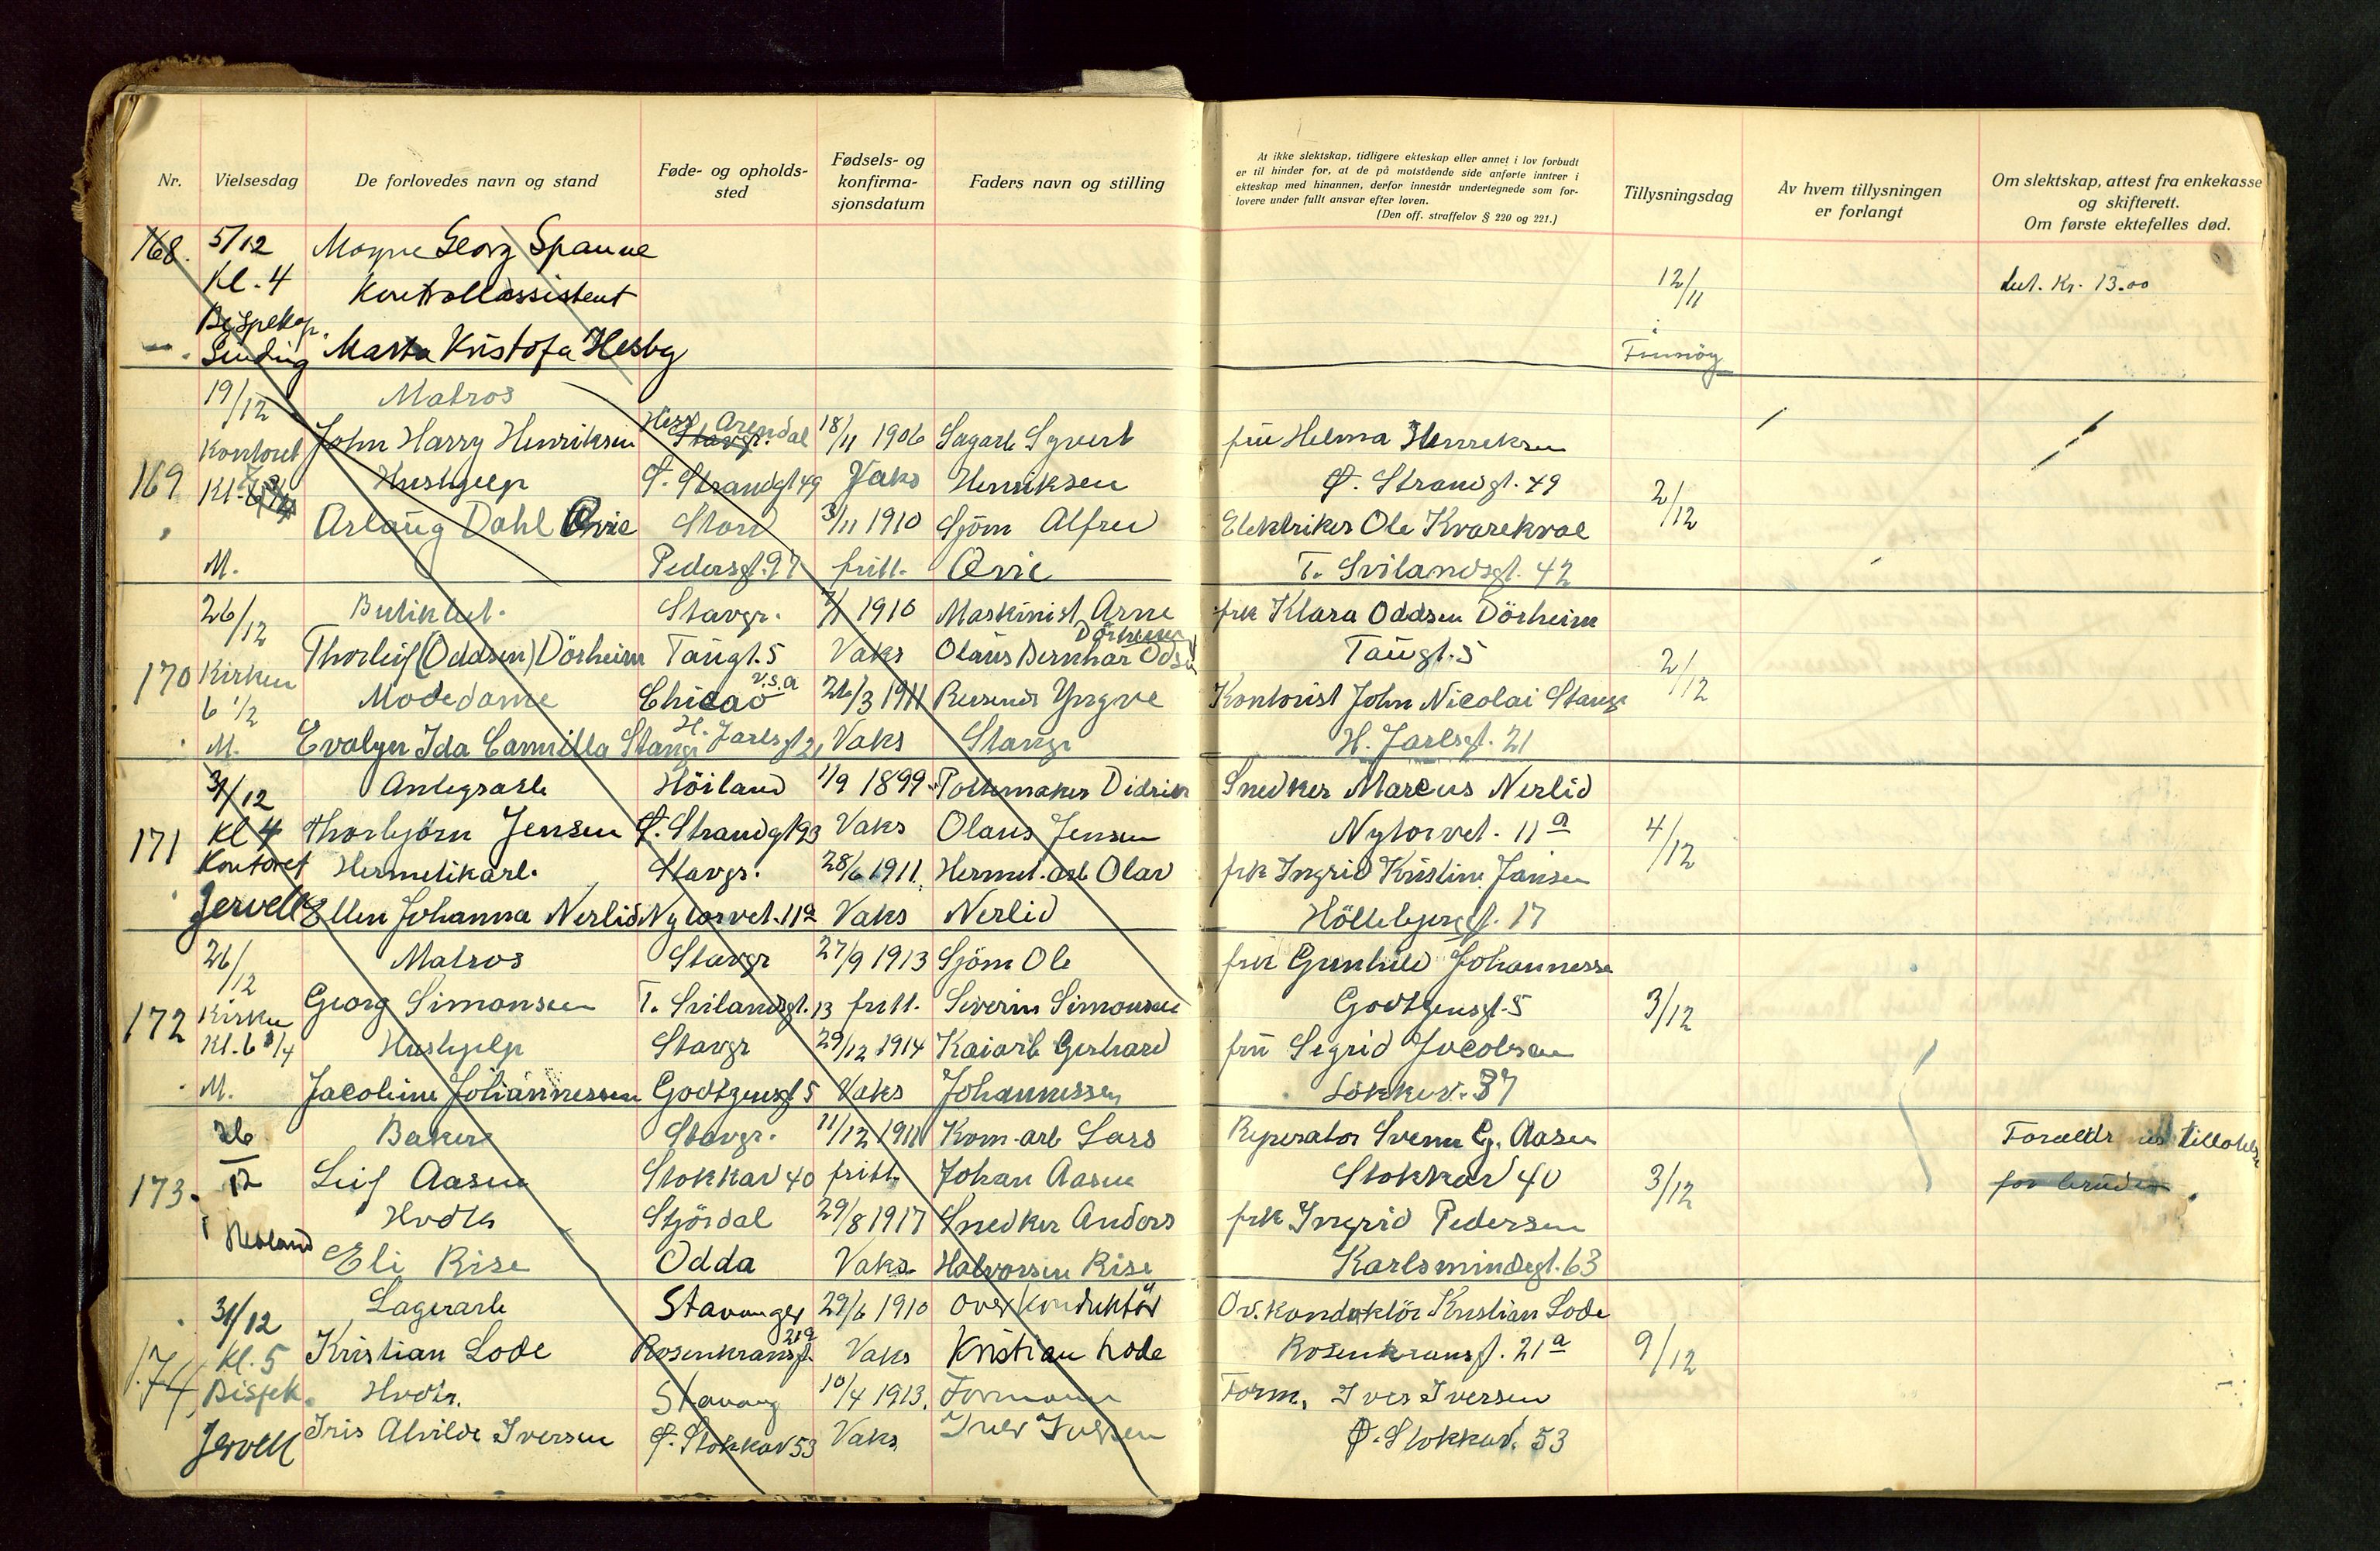 Nr.
Vielsesdag
De forlovedes navn og stand
Føde- og opholds-
sted
Fødsels- og
konfirma-
sjonsdatum
Faders navn og stilling
At ikke slektskap, tidligere ekteskap eller annet i lov forbudt
er til hinder for, at de på motstående side anførte inntrer i
ekteskap med hinannen, derfor innestår undertegnede som for-
lovere under fullt ansvar efter loven.
(Den off. straffelov § 220 og 221.)
Tillysningsdag
Av hvem tillysningen
er forlangt
Om slektskap, attest fra enkekasse
og skifterett.
Om første ektefelles død.
168. 5/12 Magne Georg Spanne
Kl. 4 Kontrollassistent 12/11 Kr. 13.00
Bispekap.
Sinding Marta Kristofa Hesby Finnöy
19/12 Matros
Kontoret John Harry Henriksen Arendal 18/11 1906 Sagarb Syvert fru Helma Henriksen
169 Kl. Hushjelp Ø. Strandgt 49 Vaks Henriksen Ø. Strandgt. 49 2/12
Aslaug Dahl Øvie Stord 3/11 1910 Sjöm Alfred Elektriker Ole Kvarekval
M. Pedersgt. 97 fritt. Øvie T. Svilandsgt. 42
26/12 Butikbet. Stavgr. 1910 Maskinist Arne frk Klara Oddsen Dörheim
Thorleif (Oddsen) Dörheim Taugt. 5 Vaks Olaus Bernhar Odsen Dörheim Taugt. 5
170 Kirken Modedame Chicao U.S.A 26/3 1911 Reisende Yngve 2/12 Kontorist John Nicolai Stange
6 1/2
M. Evalyn Ida Camilla Stange H. Jarlsgt 21 Vaks Stange H. Jarlsgt. 21
31/12 Anlegsarb Höiland 1/9 1899 Pottemaker Didrik Snedker Marcus Nerlid
171 Kl 4 Thorbjörn Jensen Ø. Strandgt 93 Vaks Olaus Jensen Nytorvet. 11a 4/12
Kontoret Hermetikarb. Stavgr. 28/6 1911. Hermet. arb Olav frk Ingrid Kristine Jansen
Jervell Ellen Johanna Nerlid Nytorvet. 11a Vaks Nerlid 17
26/12 Matros Stavgr 27/9 1913 Sjöm Ole Gunhild Johannessen
172 Kirken Georg Simonsen T. Svilandsgt. 13 fritt. Severin Simonsen Godtzensgt. 5 3/12
Kl. 6 3/4 Hushjelp Stavgr 29/12 1914 Kaiarb Gerhard fru Sigrid Jacobsen
M. Jacobine Johannessen Godtzensgt 5 Vaks Johannessen Lökkev. 37
26/12 Baker Stavgr. 11/12 1911 Kom. arb Lars Reperatör Svenn G. Aasen
173. Leif Aasen Stokkav 40 fritt. Johan Aasen Stokkav 40 3/12 for bruden
Hvdtr Stjördal 29/8 1917 Snedker Anders frk Ingrid Pedersen
Hetland Eli Rise Odda Vaks Halvorsen Rise Karlsmindegt. 63
31/12 Lagerarb Stavanger 29/6 1910 Overkonduktör Ov. konduktör Kristian Lode
174 Kl. 5 Kristian Lode Rosenkransgt. 21a Vaks Kristian Lode Rosenkransgt. 21a 9/12
Bispek. Hvdtr. Stavang 10/4 1913. Formann Form. Iver Iversen
Jervell Iris Alvilde Iversen Ø. Stokkav 53 Vaks Iver Iversen Ø. Stokkav. 53